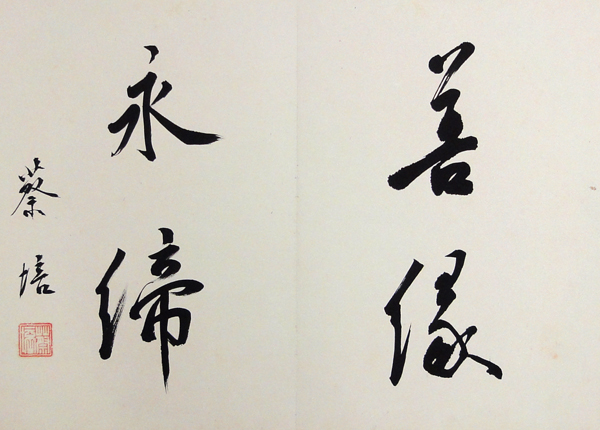 善緣
永締
蔡培